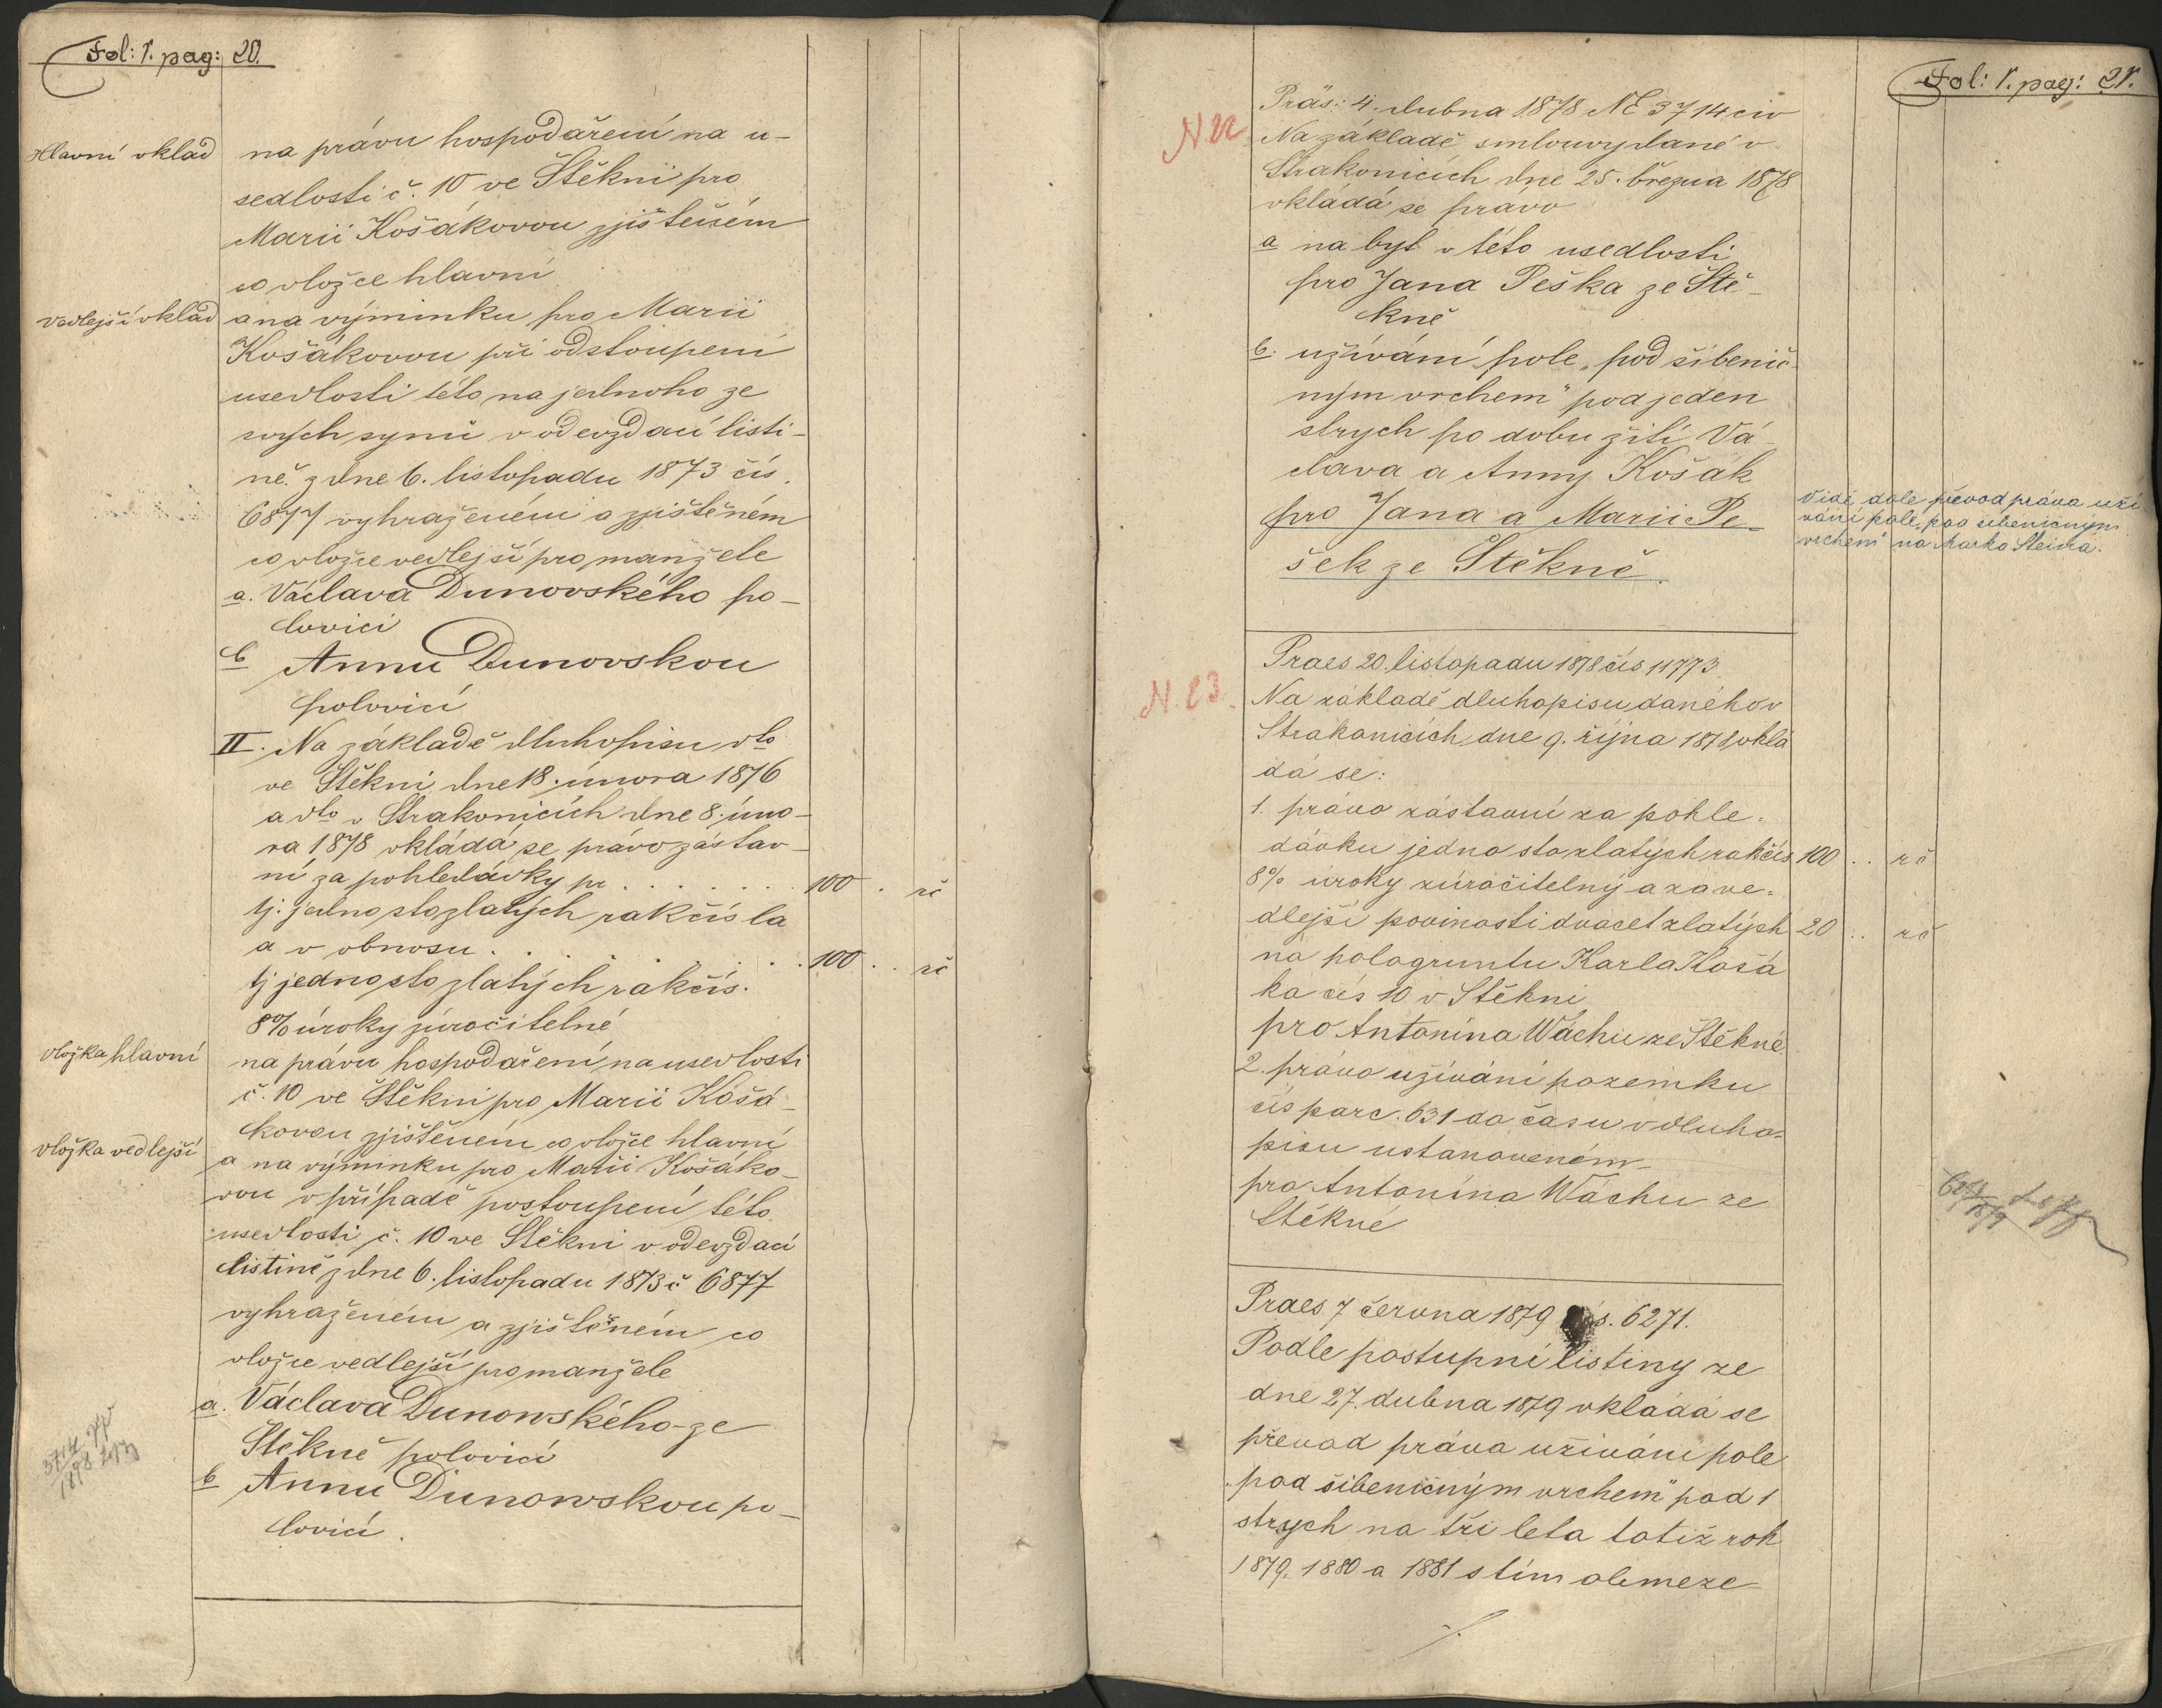 Fol: 1. pag: 20.
Hlavní vklad
na právu hospodaření na u-
sedlosti č. 10 ve Štěkni pro
Marii Košákovou zjištěném
co vložce hlavní
vedlejší vklad
a na výminku pro Marii
Košákovou při odstoupení
usedlosti této na jednoho ze
svých synů v odevzdací listi-
ně z dne 6. listopadu 1873 čís.
6877 vyhraženém a zjištěném
co vložce vedlejší pro manžele
a. Václava Dunovského po-
lovici
b Annu Dunovskou
polovicí
II. Na základě dluhopisu dto
ve Štěkni dne 18. února 1876
a dto v Strakonicích dne 8. úno-
ra 1878 vkládá se právo zástav-
ní za pohledávky pr . . . . . . . 100 . rč
tj. jedno sto zlatých rakčísla
a v obnosu . . . . . . . 100 . . rč
tj jedno sto zlatých rakčís.
8% úroky zúročitelné
vložka hlavní
na právu hospodaření na usedlosti
č. 10 ve Štěkni pro Marii Košá-
kovou zjištěném co vložce hlavní
vložka vedlejší
a na výminku pro Marii Košáko-
vou v případě postoupení této
usedlosti č. 10 ve Štěkni v odevzdací
listině z dne 6. listopadu 1873 č 6877
vyhraženém a zjištěném co
vložce vedlejší pro manžele
a. Václava Dunowského ze
Štěkně polovicí
b Annu Dunowskou po-
lovicí.
3714
1878
Fol: 1. pag: 21.
N 22.
Präs: 4. dubna 1878 NE 3714 civ
Na základě smlouvy dané v
Strakonicích dne 25. března 1878
vkládá se právo
a na byt v této usedlosti
pro Jana Peška ze Ště-
kně
b. užívání pole „pod šibenič-
ným vrchem“ pod jeden
strych po dobu žití Vá-
clava a Anny Košák
pro Jana a Marii Pe-
šek ze Štěkně.
Viď dole převod práva uží
vání pole „pod šibeničným
vrchem“ na Marka Steina.
N. 23.
Praes 20. listopadu 1878 čís 11773
Na základě dluhopisu daného v
Strakonicích dne 9. října 1878 vklá
dá se:
1. právo zástavní za pohle-
dávku jedno sto zlatých rakčís 100 . . rč
8% úroky zúročitelný a za ve-
dlejší povinosti dvacet zlatých 20 . . rč
na pologruntu Karla Košá
ka čís 10 v Štěkni
pro Antonína Wáchu ze Štěkně.
2. právo užívání pozemku
čís parc. 631 do času v dluho-
pisu ustanoveném
pro Antonína Wáchu ze
Štěkně
Praes. 7 června 1879 čís. 6271.
Podle postupní listiny ze
dne 27. dubna 1879 vkládá se
převod práva užívání pole
„pod šibeničným vrchem“ pod 1
strych na tři leta totiž rok
1879, 1880 a 1881 s tím obmeze-
./.